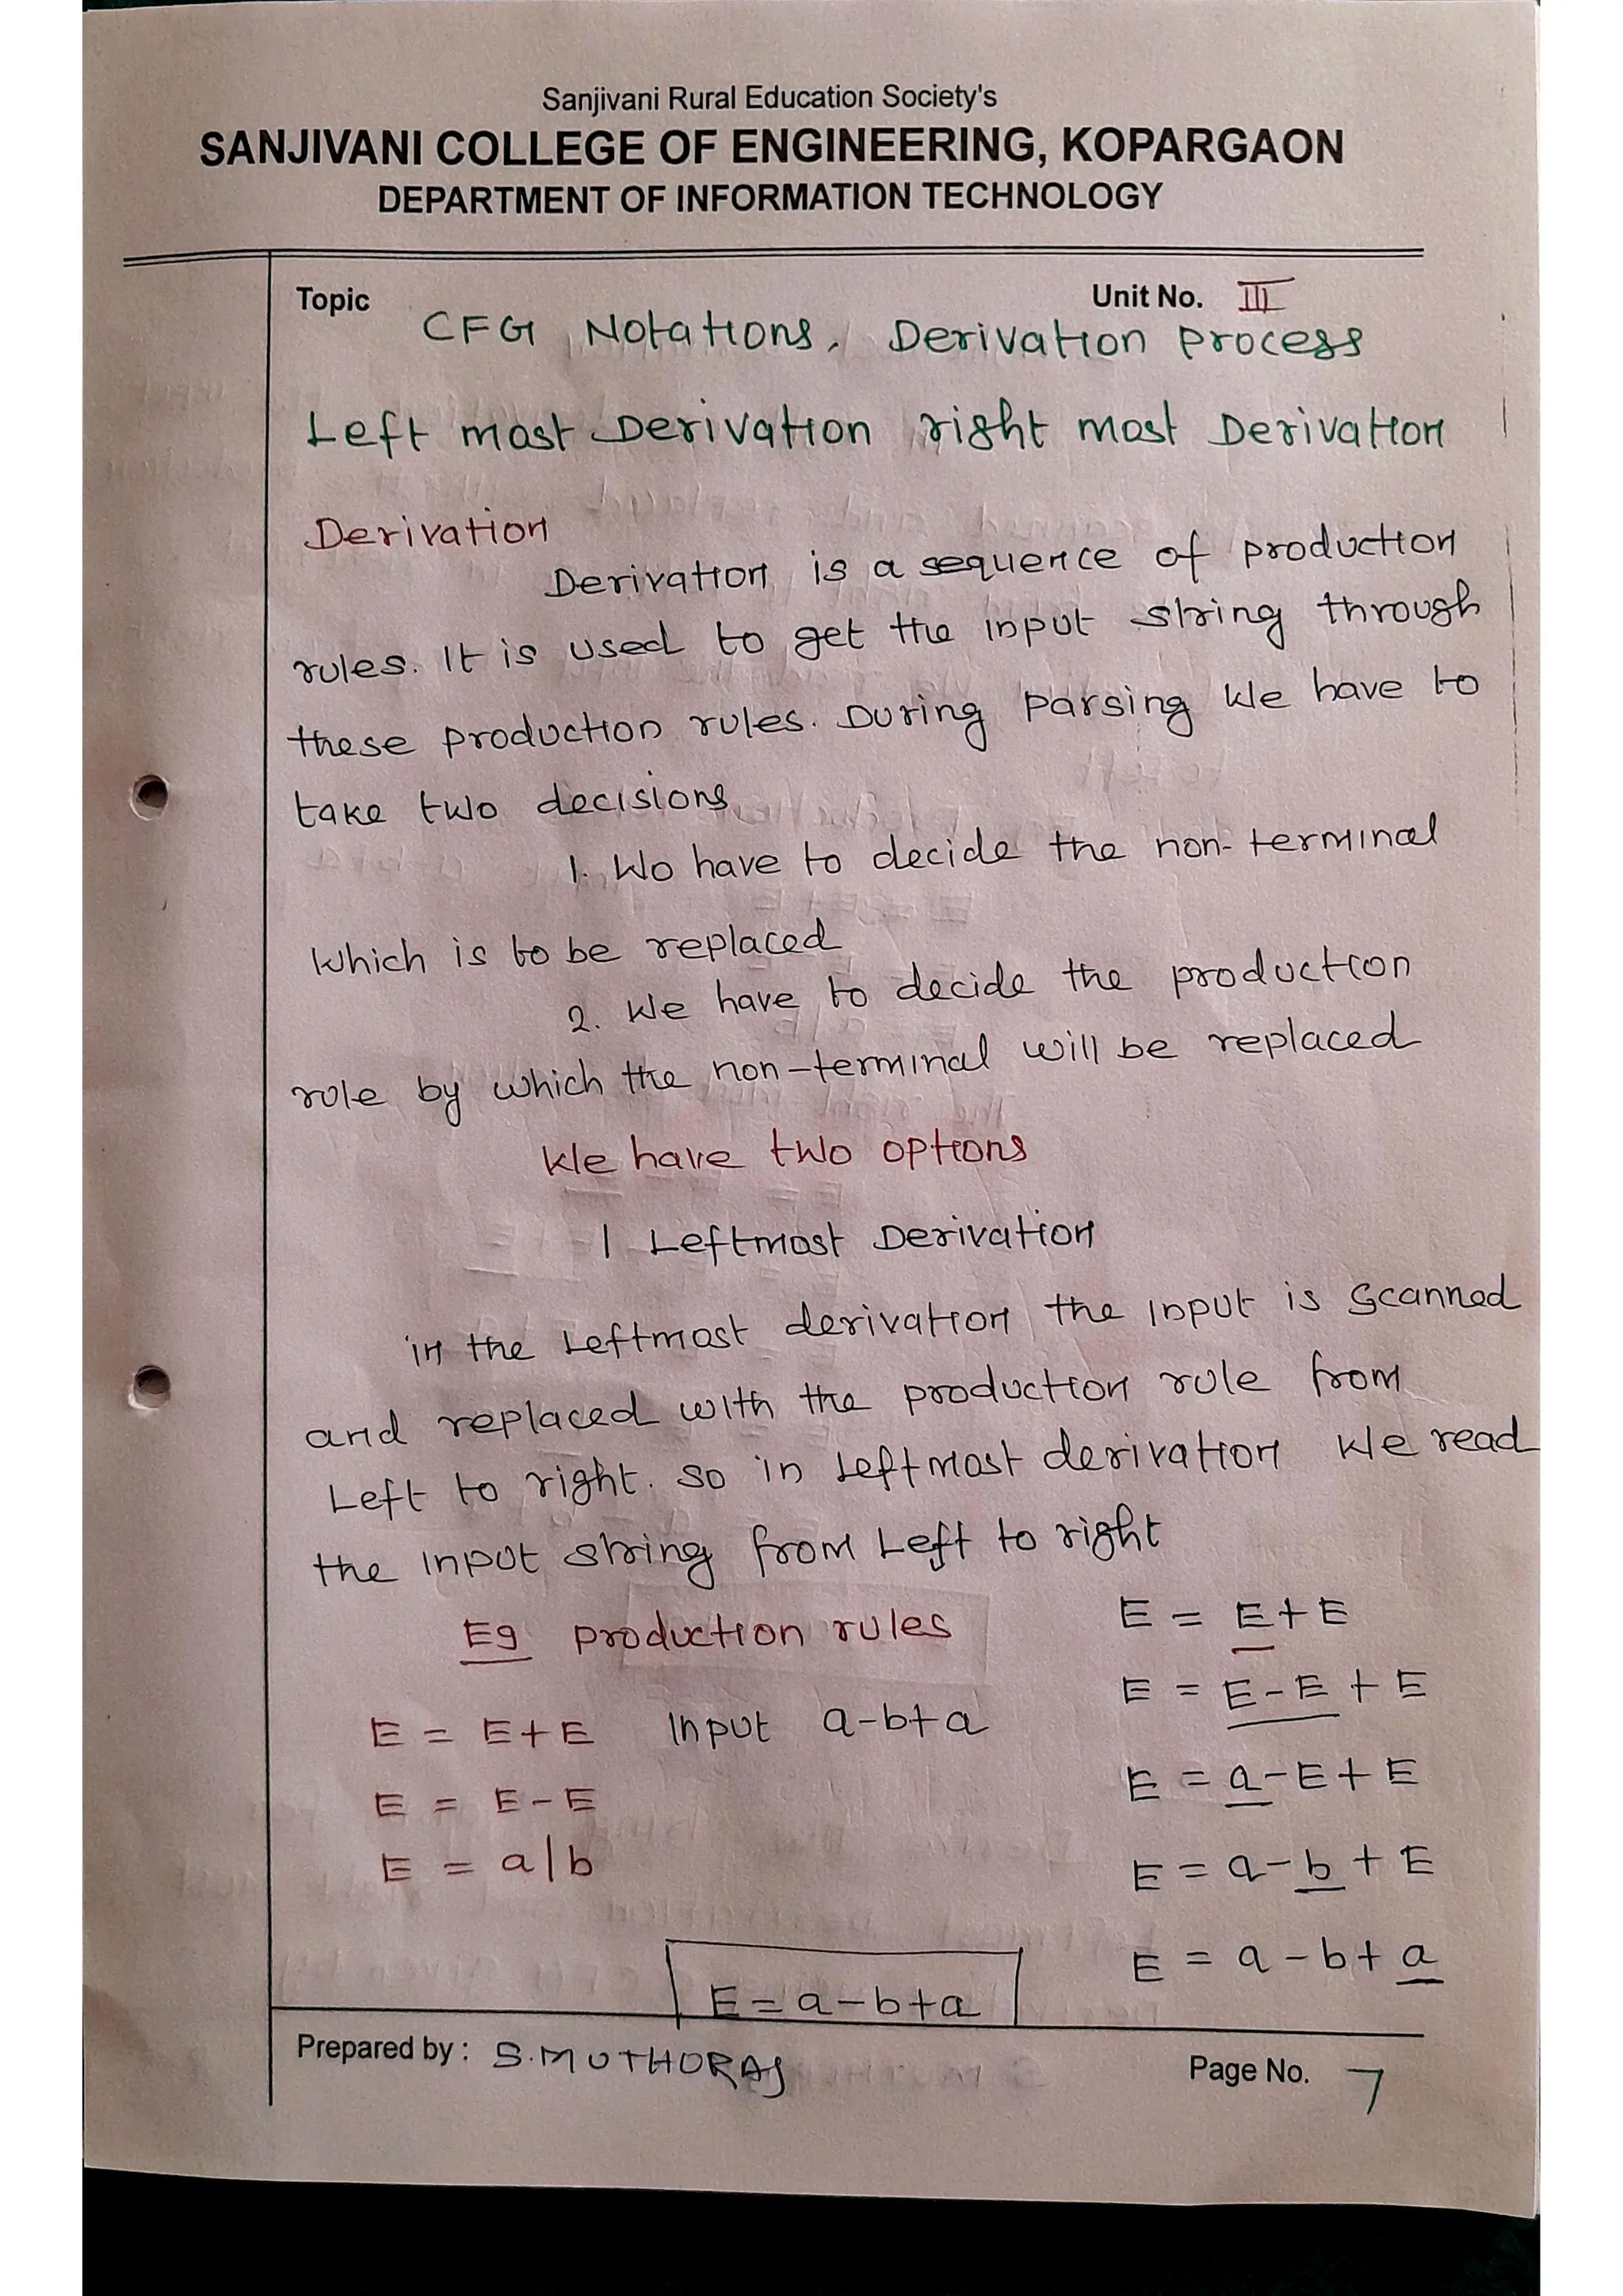 Sanjivani Rural Education Society's
SANJIVANI COLLEGE OF ENGINEERING, KOPARGAON
DEPARTMENT OF INFORMATION TECHNOLOGY
Topic
Unit No. III
CFG Notations, Derivation Process
Left most Derivation right most Derivation
Derivation
Derivation is a sequence of production
rules. It is used to get the input string through
these production rules. During parsing We have to
take two decisions
1. We have to decide the non-terminal
Which is to be replaced
2. We have to decide the production
rule by which the non-terminal will be replaced
We have two options
1 Leftmost Derivation
in the Leftmost derivation the input is scanned
and replaced with the production rule from
Left to right. so in Leftmost derivation We read
the input string from Left to right
Eg production rules
E = E+E Input a-b+a
E = E-E
E = a|b
E = E+E
E = E-E+E
E = a-E+E
E = a-b+E
E = a-b+a
E = a-b+a
Prepared by : S.MUTHURAJ
Page No. 7